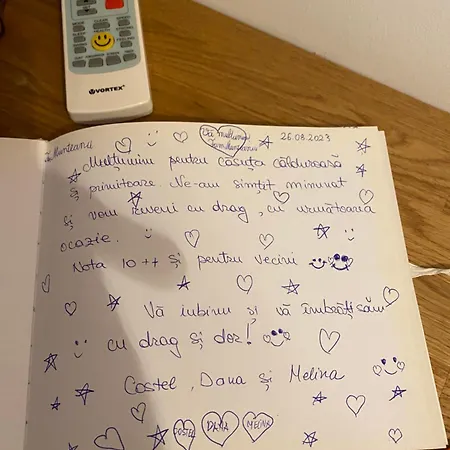 VORTEX
Munteanu
Vă mulțumim
fam. Munteanu
26.08.2023
Mulțumim pentru căsuța călduroasă
și primitoare. Ne-am simțit minunat
și vom reveni cu drag, cu următoarea
ocazie.
Nota 10 ++ și pentru vecini
Vă iubim și vă îmbrățisăm
cu drag și dor!
Costel, Dana și Melina
COSTEL DANA MELINA